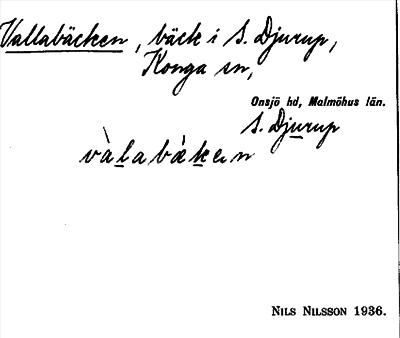 Vallabäcken, bäck i S. Djurup,
Konga sn,
Onsjö hd, Malmöhus län.
S. Djurup
vàlabǽken
NILS NILSSON 1936.